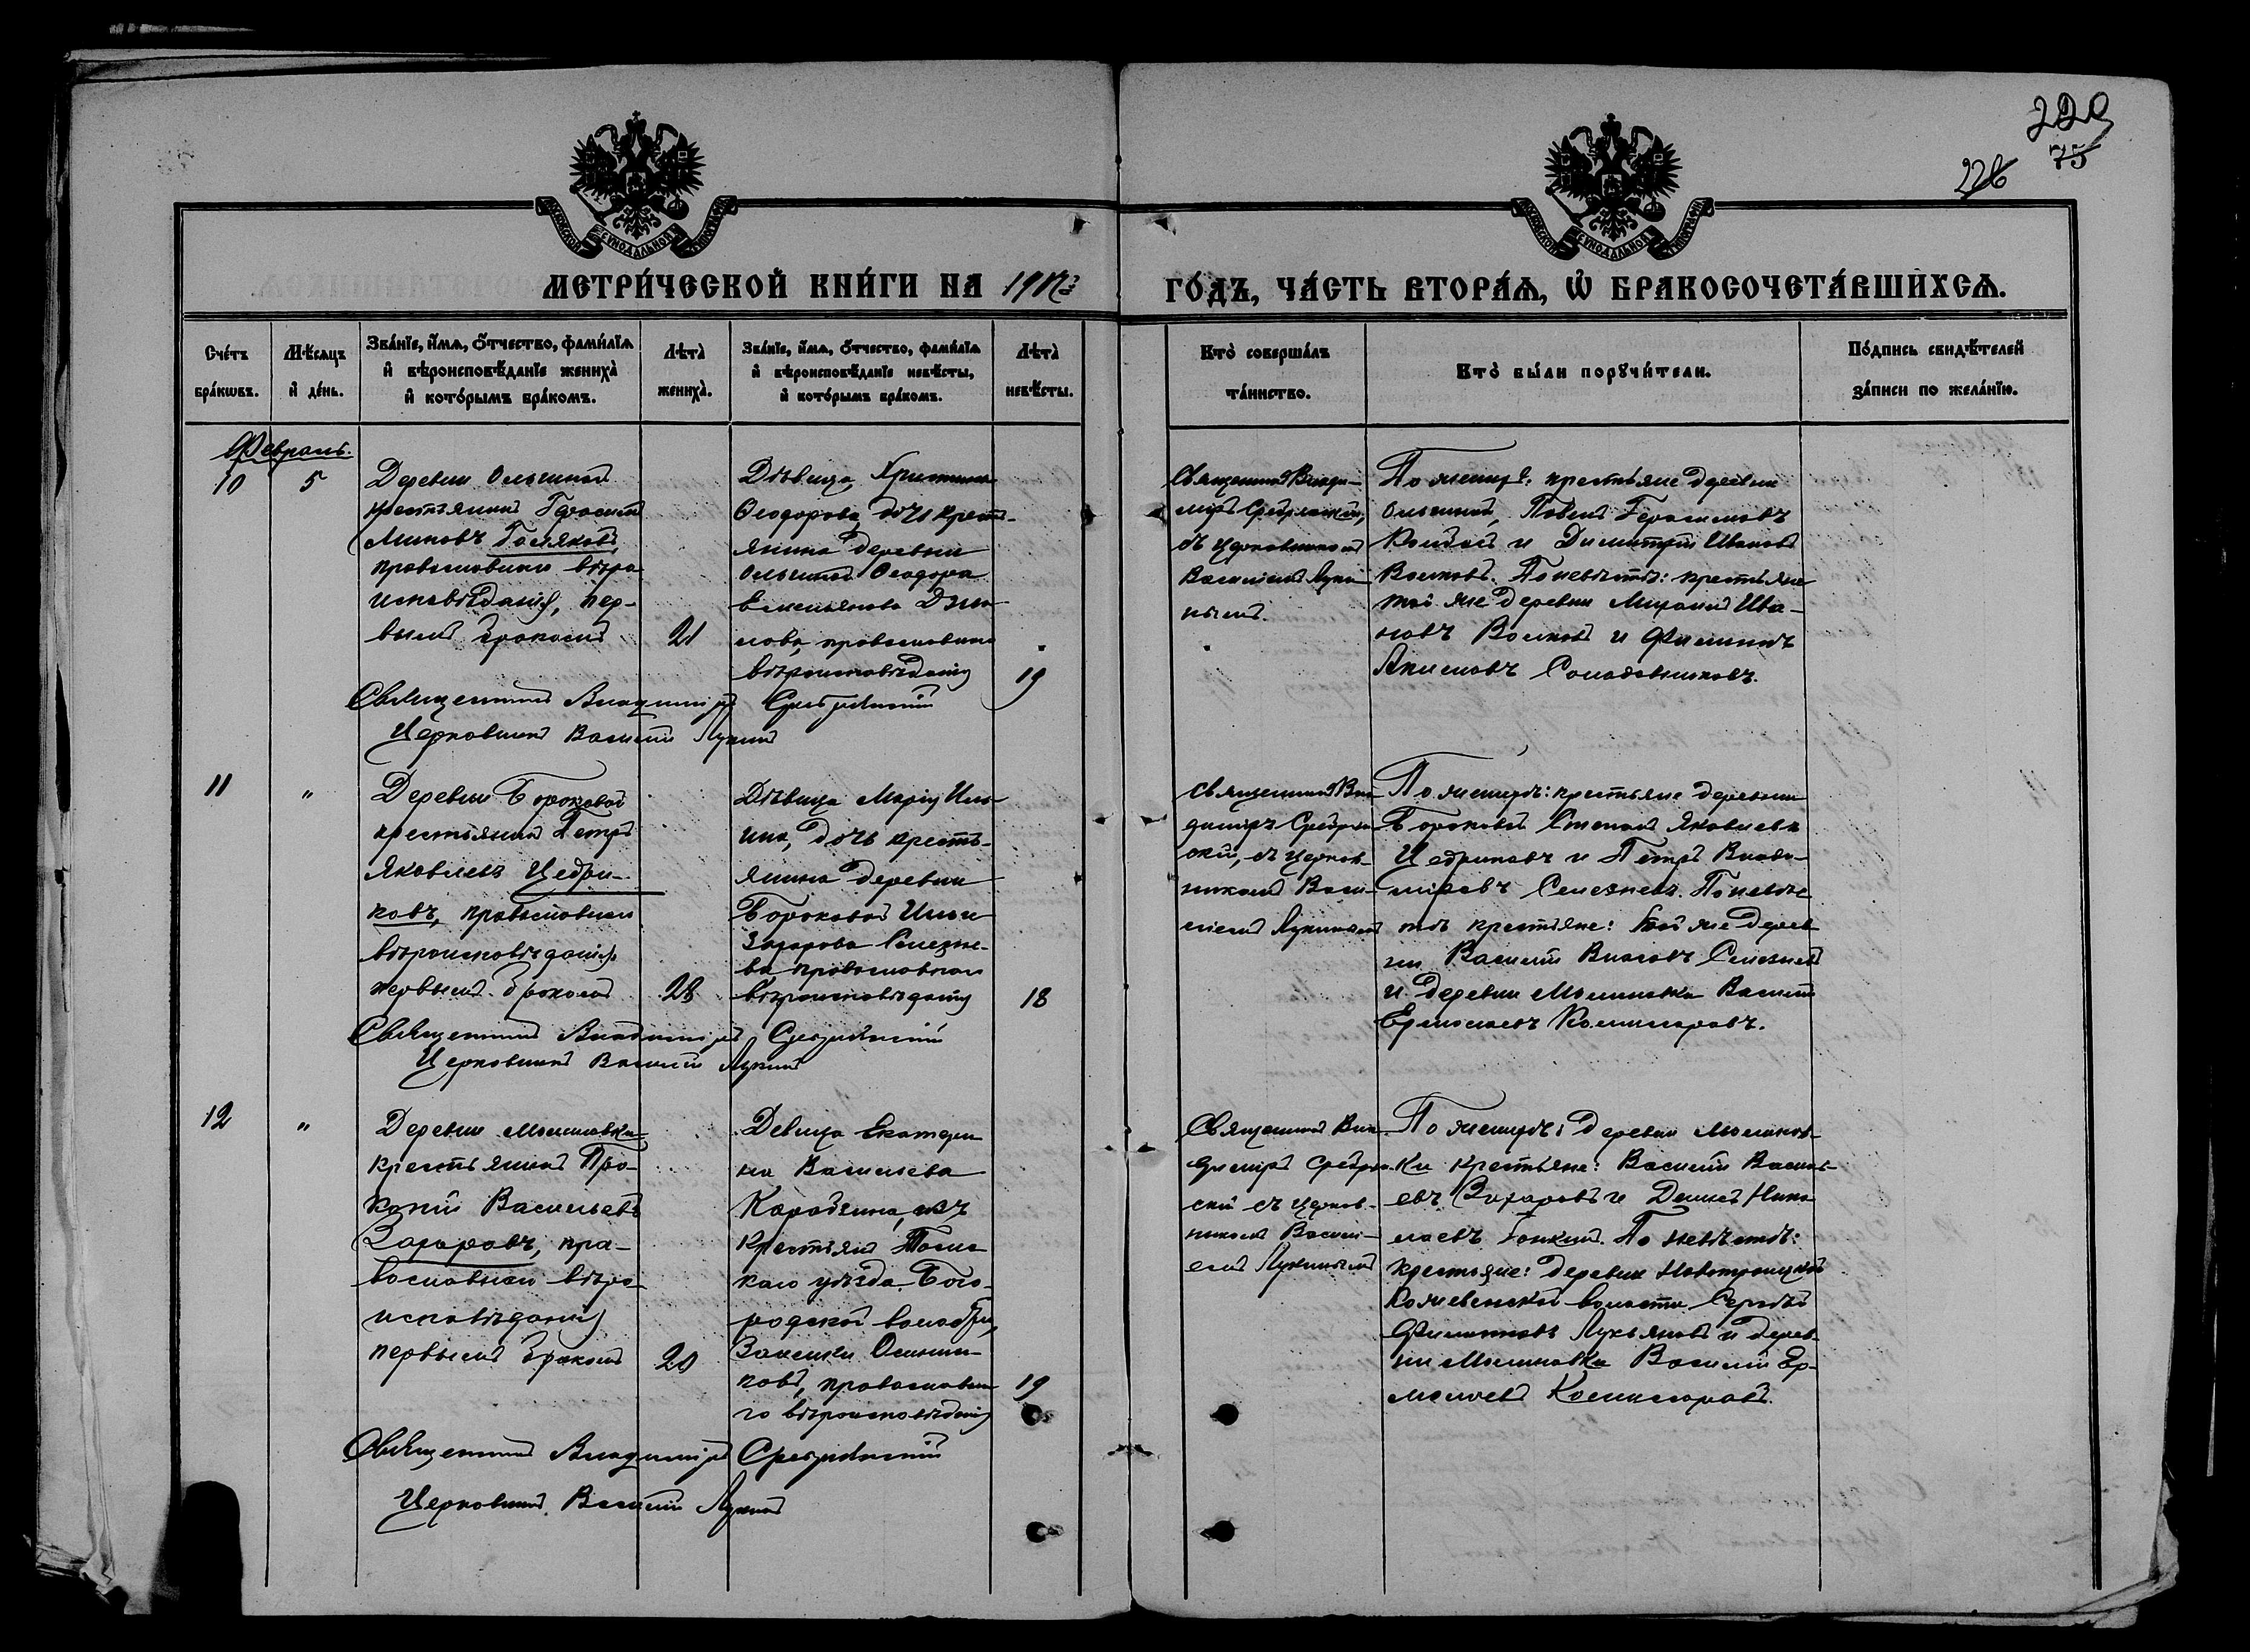 220
75
226
МОСКОВСКОЙ СѴНОДАЛЬНОЙ ТИПОГРАФІИ
МОСКОВСКОЙ СѴНОДАЛЬНОЙ ТИПОГРАФІИ
МЕТРИ́ЧЕСКОЙ КНИ́ГИ НА
ГО́ДЪ, ЧА́СТЬ ВТОРА́Ѧ, Ѡ҆ БРАКОСОЧЕТА́ВШИХСѦ.
Сче́тъ бра́кѡвъ.
Мѣ́сѧцъ и҆ де́нь.
Зва́нїе, и҆́мѧ, ѻ҆́тчество, фами́лїѧ и҆ вѣроисповѣ́данїе жениха̀ и҆ кото́рымъ бра́комъ.
Лѣта̀ жениха̀.
Зва́нїе, и҆́мѧ, ѻ҆́тчество, фами́лїѧ и҆ вѣроисповѣ́данїе невѣ́сты, и҆ кото́рымъ бра́комъ.
Лѣта̀ невѣ́сты.
Кто̀ соверша́лъ та́инство.
Кто̀ бы́ли порꙋчи́тели.
По́дпись свидѣ́телей за́писи по жела́нїю.
Февраль.
10
5
Деревни
крестьянинъ Герасимъ
православнаго вѣро
исповѣданія, пер-
вымъ бракомъ
21
Дѣвица Христина
Ѳеодорова, дочь крест-
янина деревни
Ѳеодора
Емельянова
православнаго
вѣроисповѣданія
19
Священникъ Влади-
міръ
съ церковникомъ
Василіемъ Луки-
нымъ.
По женихѣ: крестьяне деревни
Павелъ Герасимовъ
и Димитрій Ивановъ
Волковъ. По невѣстѣ: крестьяне
той же деревни Ива-
новъ Волковъ и Филиппъ
Акимовъ Солодовниковъ.
Священникъ Владиміръ
Церковникъ Василій Лукинъ
11
"
Деревни Бороковой
крестьянинъ Петръ
Яковлевъ Цедри-
ковъ, православнаго
вѣроисповѣданія
первымъ бракомъ
28
Дѣвица Марія Иль-
ина, дочь кресть-
янина деревни
Бороковой Ильи
Захарова Селезне-
ва православнаго
вѣроисповѣданія
18
Священникъ Вла-
диміръ
съ церков-
никомъ Васи-
ліемъ Лукинымъ
По женихѣ: крестьяне деревни
Бороковой Степанъ Яковлевъ
Цедриковъ и Петръ Влади-
міровъ Селезневъ. По невѣс-
тѣ крестьяне: той же дерев-
ни Василій Власовъ Селезневъ
и деревни Василій
Ермолаевъ Комиссаровъ.
Священникъ Владиміръ
Церковникъ Василій Лукинъ
12
"
Деревни
крестьянинъ Про-
копій Васильевъ
Захаровъ, пра-
вославнаго вѣро
исповѣданія
первымъ бракомъ
20
Девица Екатери-
на Васильева
изъ
крестьянъ Томс-
каго уѣзда Бого-
родской волости,
Заимки Осинни-
ковъ, православна-
го вѣроисповѣданія
19
Священникъ Вла-
диміръ
скій съ церков-
никомъ Васи-
ліемъ Лукинымъ
По женихѣ: деревни
ки крестьяне: Василій Василь-
евъ Захаровъ и Нико-
лаевъ По невѣстѣ:
крестьяне: деревни Новотроицкой
волости Сергѣй
Филипповъ Лукьяновъ и дерев-
ни Василій Ер-
молаевъ Комиссаровъ.
Священникъ Владиміръ
Церковникъ Василій Лукинъ